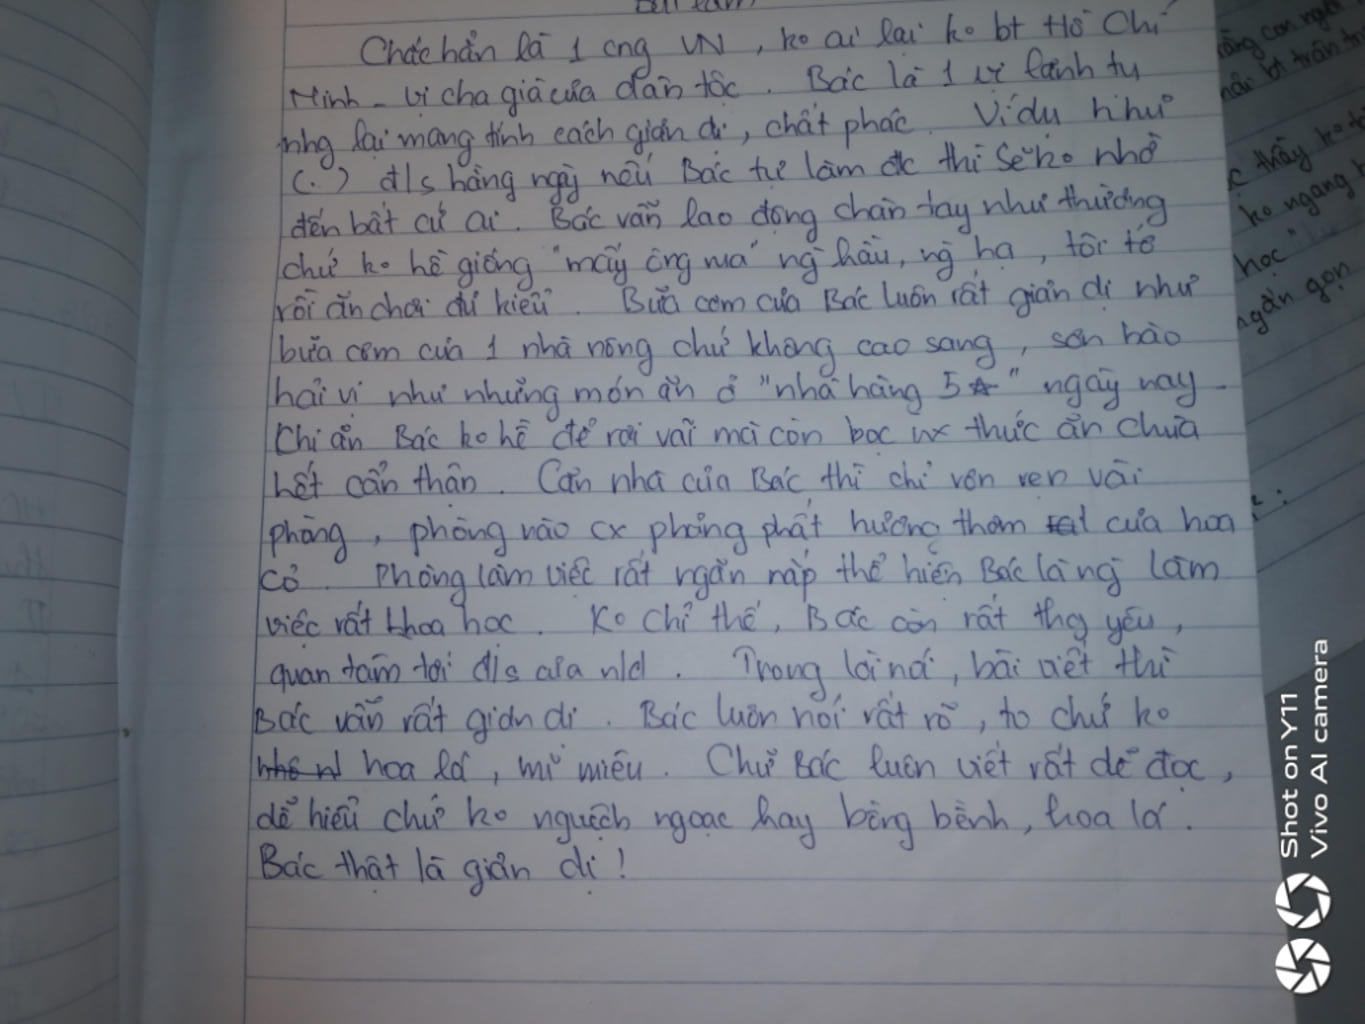 Bài làm
Chắc hẳn là 1 cng VN, ko ai lại ko bt Hồ Chí
Minh - vị cha già của dân tộc. Bác là 1 vị lãnh tụ
nhg lại mang tính cách giản dị, chất phác. Ví dụ như
(.) đ/s hằng ngày nếu Bác tự làm đc thì sẽ ko nhờ
đến bất cứ ai. Bác vẫn lao động chân tay như thường
chứ ko hề giống "mấy ông vua" ng hầu, ng hạ, tôi tớ
rồi ăn chơi đủ kiểu. Bữa cơm của Bác luôn rất giản dị như
bữa cơm của 1 nhà nông chứ không cao sang, sơn hào
hải vị như những món ăn ở "nhà hàng 5☆" ngày nay.
Khi ăn Bác ko hề để rơi vãi mà còn bọc thức ăn chưa
hết cẩn thận. Căn nhà của Bác thì chỉ vỏn vẹn vài
phòng, phòng nào cx phảng phất hương thơm của hoa
cỏ. Phòng làm việc rất ngăn nắp thể hiện Bác là ng làm
việc rất khoa học. Ko chỉ thế, Bác còn rất thg yêu,
quan tâm tới đ/s của nld. Trong lời nói, bài viết thì
Bác vẫn rất giản dị. Bác luôn nói rất rõ, to chứ ko
hoa lá, mĩ miều. Chữ Bác luôn viết rất dễ đọc,
dễ hiểu chứ ko nguệch ngoạc hay bồng bềnh, hoa lá.
Bác thật là giản dị!
rằng con người
bt trân tr
thấy ko
ko ngang
học"
ngắn gọn
Shot on Y11
Vivo AI camera